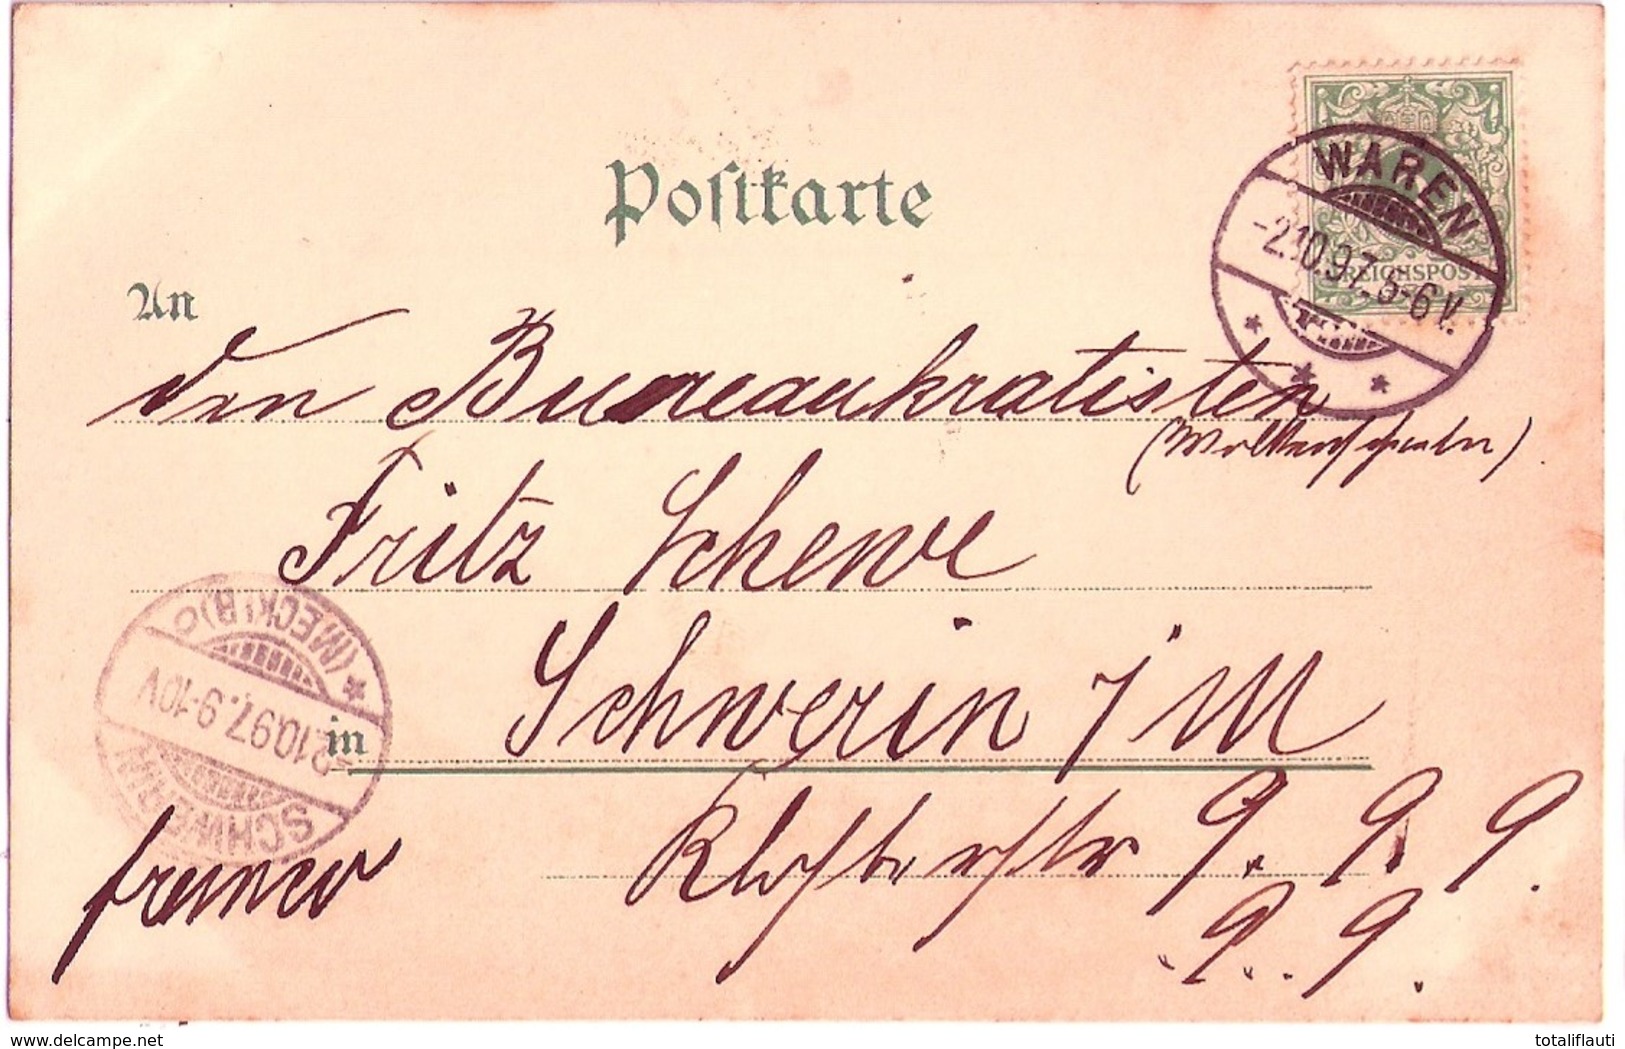 Postkarte
WAREN
-2.10.97. 5-6 V.
REICHSPOST
An
den Bureaukratisten
(Wolkenschieber)
Fritz Schewe
in Schwerin i/M
Klosterstr 9. 9. 9.
9. 9.
franco
SCHWERIN
-2.10.97. 9-10V
(MECKLB) c
delcampe.net
totaliflauti